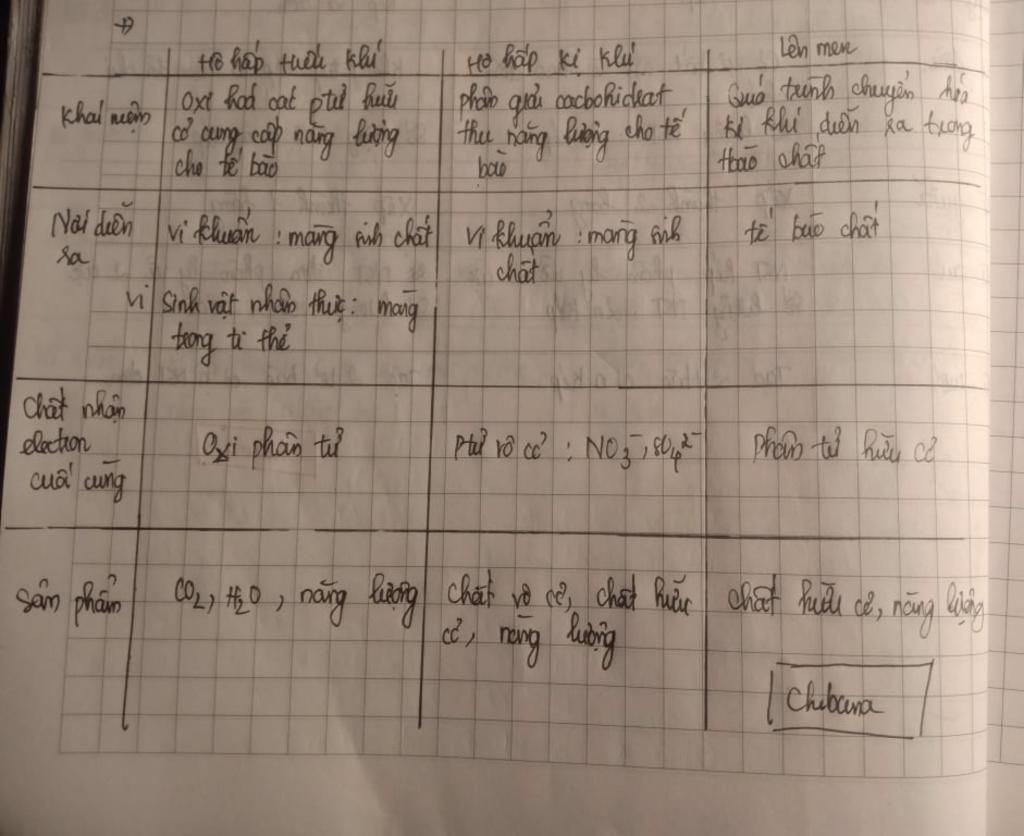 Hô hấp hiếu khí
Hô hấp kị khí
Lên men
Khái niệm
Oxi hoá các ptử hữu
cơ cung cấp năng lượng
cho tế bào
phân giải cacbohidrat
thu năng lượng cho tế
bào
Quá trình chuyển hóa
kị khí diễn ra trong
tbào chất
Nơi diễn
ra
vi khuẩn : màng sinh chất
vi sinh vật nhân thực: màng
trong ti thể
vi khuẩn : màng sinh
chất
tế bào chất
Chất nhận
electron
cuối cùng
Oxi phân tử
ptử vô cơ : NO₃⁻, SO₄²⁻
phân tử hữu cơ
Sản phẩm
CO₂, H₂O, năng lượng
chất vô cơ, chất hữu
cơ, năng lượng
chất hữu cơ, năng lượng
Chibana